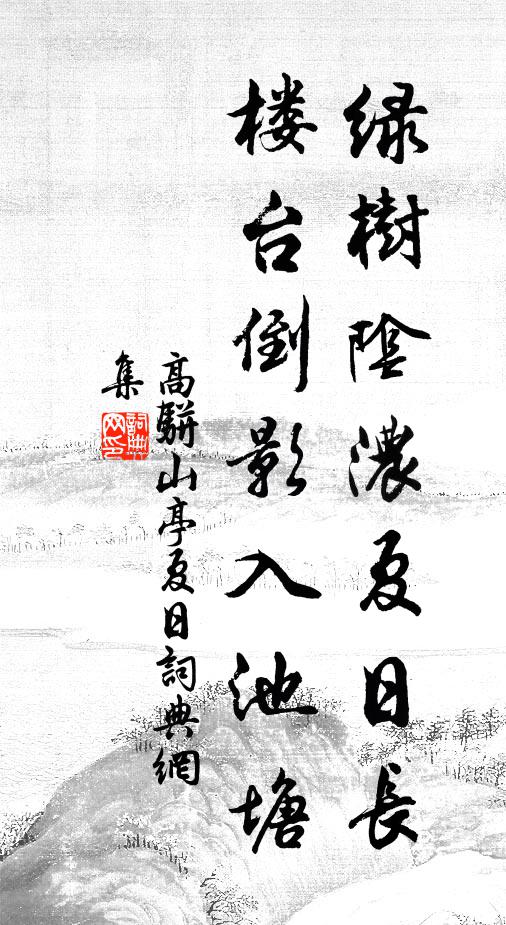 绿樹陰濃夏日長
楼台倒影入池塘
高駢山亭夏日詞典網
集
詞典網印